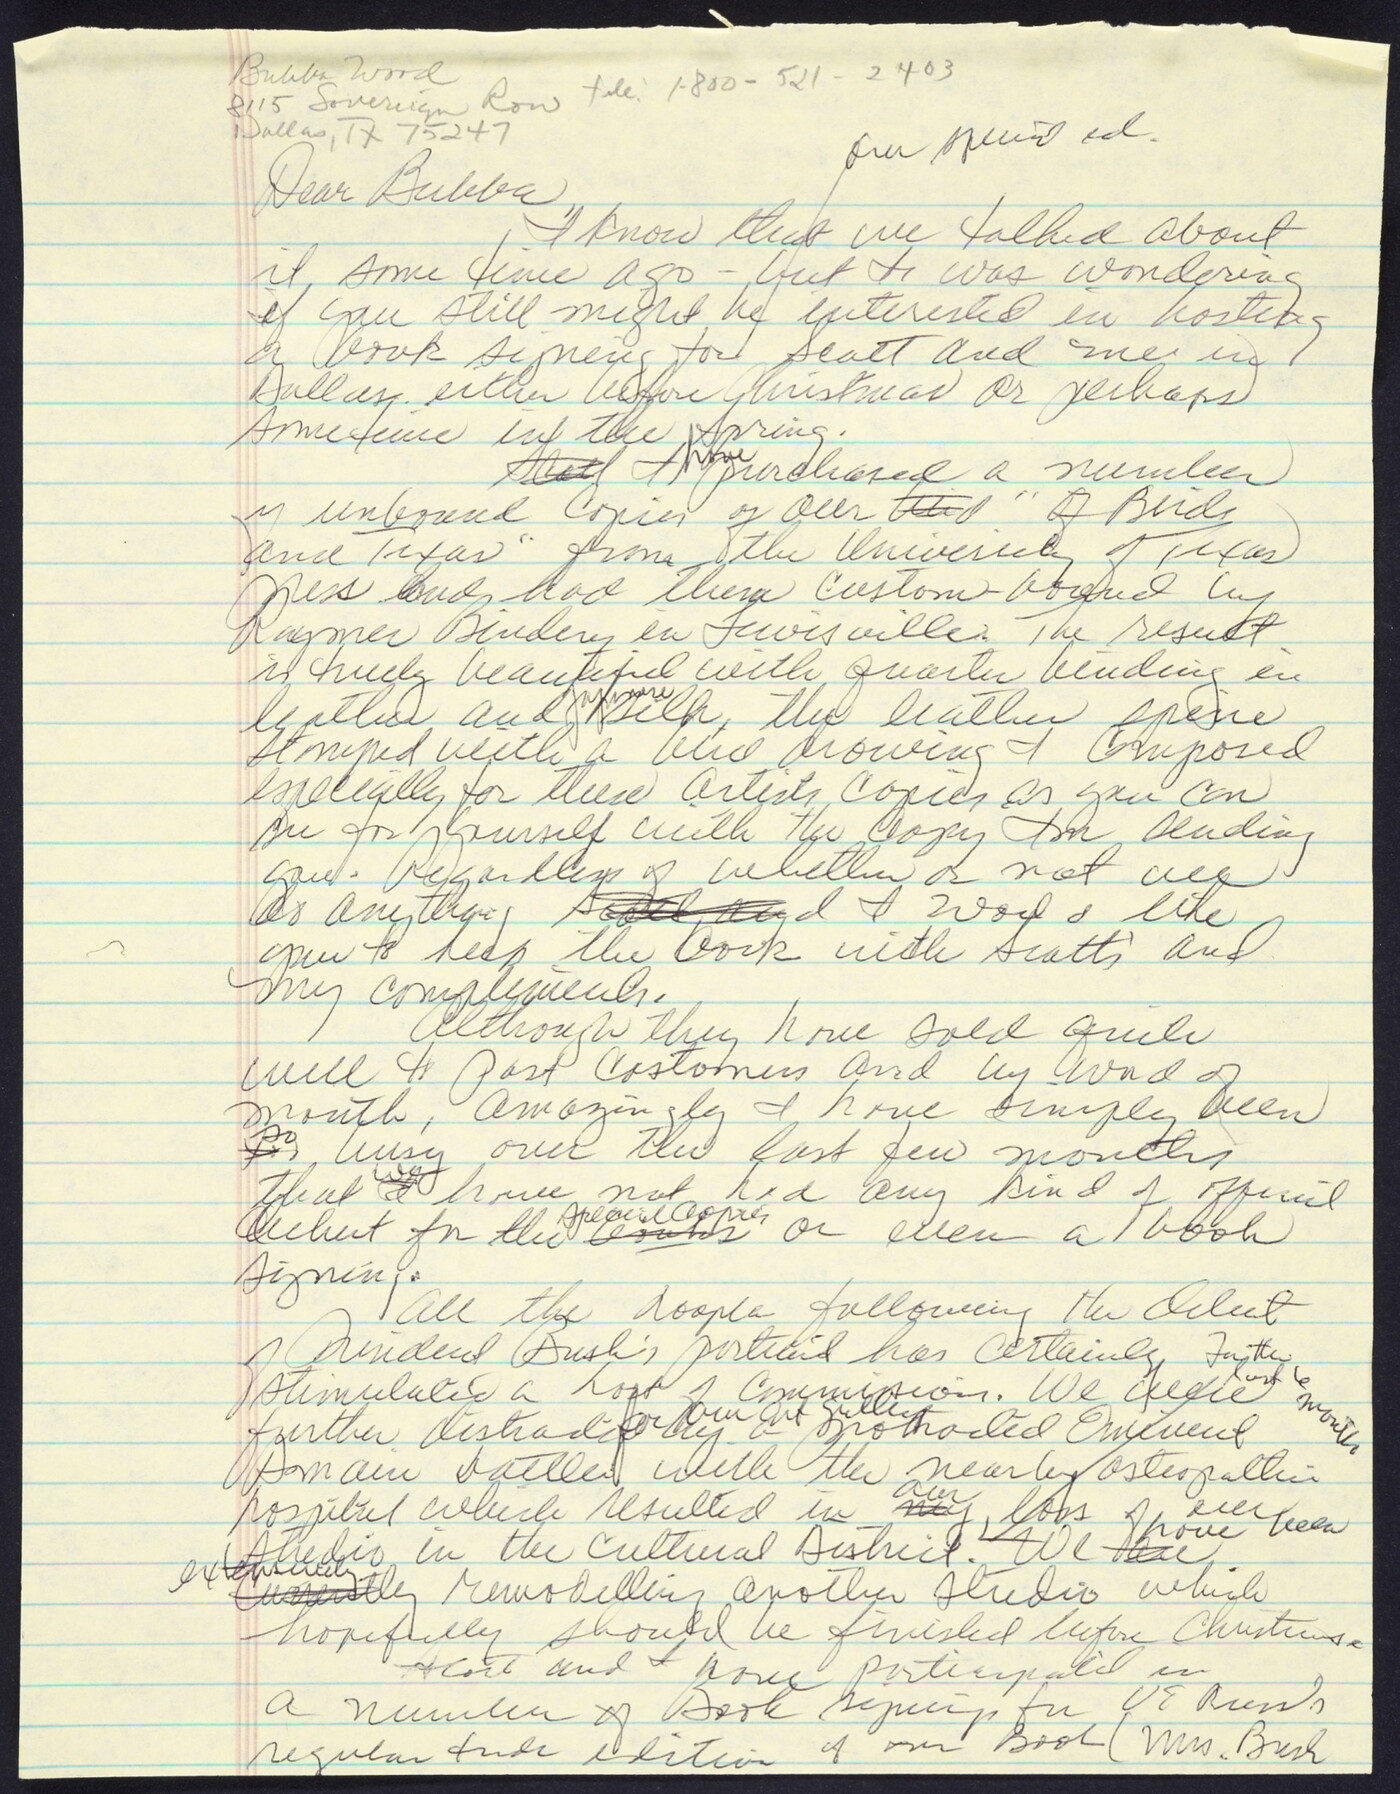 Bubba Wood
8115 Sovereign Row tele: 1-800-521-2403
Dallas, TX 75247
our special ed.
Dear Bubba,
I know that we talked about
it some time ago - but I was wondering
if you still might be interested in hosting
a book signing for Scott and me in
Dallas either before Christmas or perhaps
sometime in the spring.
I have purchased a number
of unbound copies of our "Of Birds
and Texas" from the University of Texas
press and had them custom-bound by
Raymer Bindery in Lewisville. The result
is truly beautiful with quarter binding in
leather and Japanese silk, the leather spine
stamped with a bird drawing I composed
especially for these artists copies as you can
see for yourself with the copy I'm sending
you. Regardless of whether or not we
do anything Scott and I would like
you to keep the book with Scott's and
my compliments.
Although they have sold quite
well to past customers and by word of
mouth, amazingly I have simply been
so busy over the last few months
that we have not had any kind of official
debut for the special copies or even a book
signing.
All the hoopla following the debut
of President Bush's portrait has certainly
stimulated a host of commissions. We were further
further distracted for last 6 months
by a protracted Eminent
Domain battle for our art gallery with the nearby osteopathic
hospital which resulted in our loss of our
studio in the Cultural District. We have been
extensively remodelling another studio which
hopefully should be finished before Christmas.
Scott and I have participated in
a number of Book signings for UT Press's
regular trade edition of our Book (Mrs. Bush